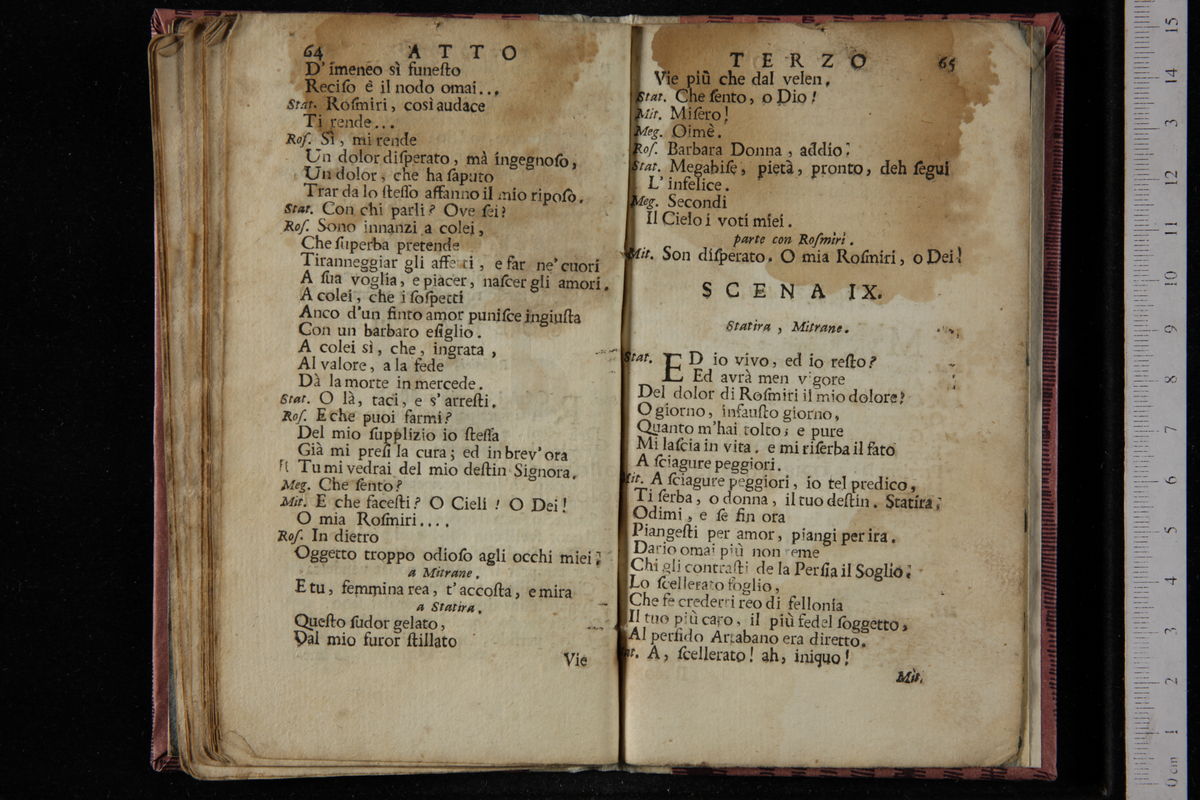 64 ATTO
D' imeneo sì funeſto
Reciſo è il nodo omai...
Stat. Roſmiri, così audace
Ti rende...
Roſ. Sì, mi rende
Un dolor diſperato, mà ingegnoſo,
Un dolor, che ha ſaputo
Trar da lo ſteſſo affanno il mio ripoſo.
Stat. Con chi parli? Ove ſei?
Roſ. Sono innanzi a colei,
Che ſuperba pretende
Tiranneggiar gli affetti, e far ne' cuori
A ſua voglia, e piacer, naſcer gli amori.
A colei, che i ſoſpetti
Anco d'un finto amor puniſce ingiuſta
Con un barbaro eſiglio.
A colei sì, che, ingrata,
Al valore, a la fede
Dà la morte in mercede.
Stat. O là, taci, e s' arreſti.
Roſ. E che puoi farmi?
Del mio ſupplizio io ſteſſa
Già mi preſi la cura; ed in brev' ora
Tu mi vedrai del mio deſtin Signora.
Meg. Che ſento?
Mit. E che faceſti? O Cieli! O Dei!
O mia Roſmiri....
Roſ. In dietro
Oggetto troppo odioſo agli occhi miei;
a Mitrane.
E tu, femmina rea, t' accoſta, e mira
a Statira.
Queſto ſudor gelato,
Dal mio furor ſtillato
Vie
TERZO 65
Vie più che dal velen.
Stat. Che ſento, o Dio!
Mit. Miſero!
Meg. Oimè.
Roſ. Barbara Donna, addio:
Stat. Megabiſe, pietà, pronto, deh ſegui
L' infelice.
Meg. Secondi
Il Cielo i voti miei.
parte con Roſmiri.
Mit. Son diſperato. O mia Roſmiri, o Dei!
SCENA IX.
Statira, Mitrane.
Stat. ED io vivo, ed io reſto?
Ed avrà men vigore
Del dolor di Roſmiri il mio dolore?
O giorno, infauſto giorno,
Quanto m'hai tolto; e pure
Mi laſcia in vita, e mi riſerba il fato
A ſciagure peggiori.
Mit. A ſciagure peggiori, io tel predico,
Ti ſerba, o donna, il tuo deſtin. Statira;
Odimi, e ſe fin ora
Piangeſti per amor, piangi per ira.
Dario omai più non teme
Chi gli contraſti de la Perſia il Soglio.
Lo ſcellerato foglio,
Che fe crederti reo di fellonia
Il tuo più caro, il più fedel ſoggetto,
Al perfido Artabano era diretto.
Stat. A, ſcellerato! ah, iniquo!
Mit.